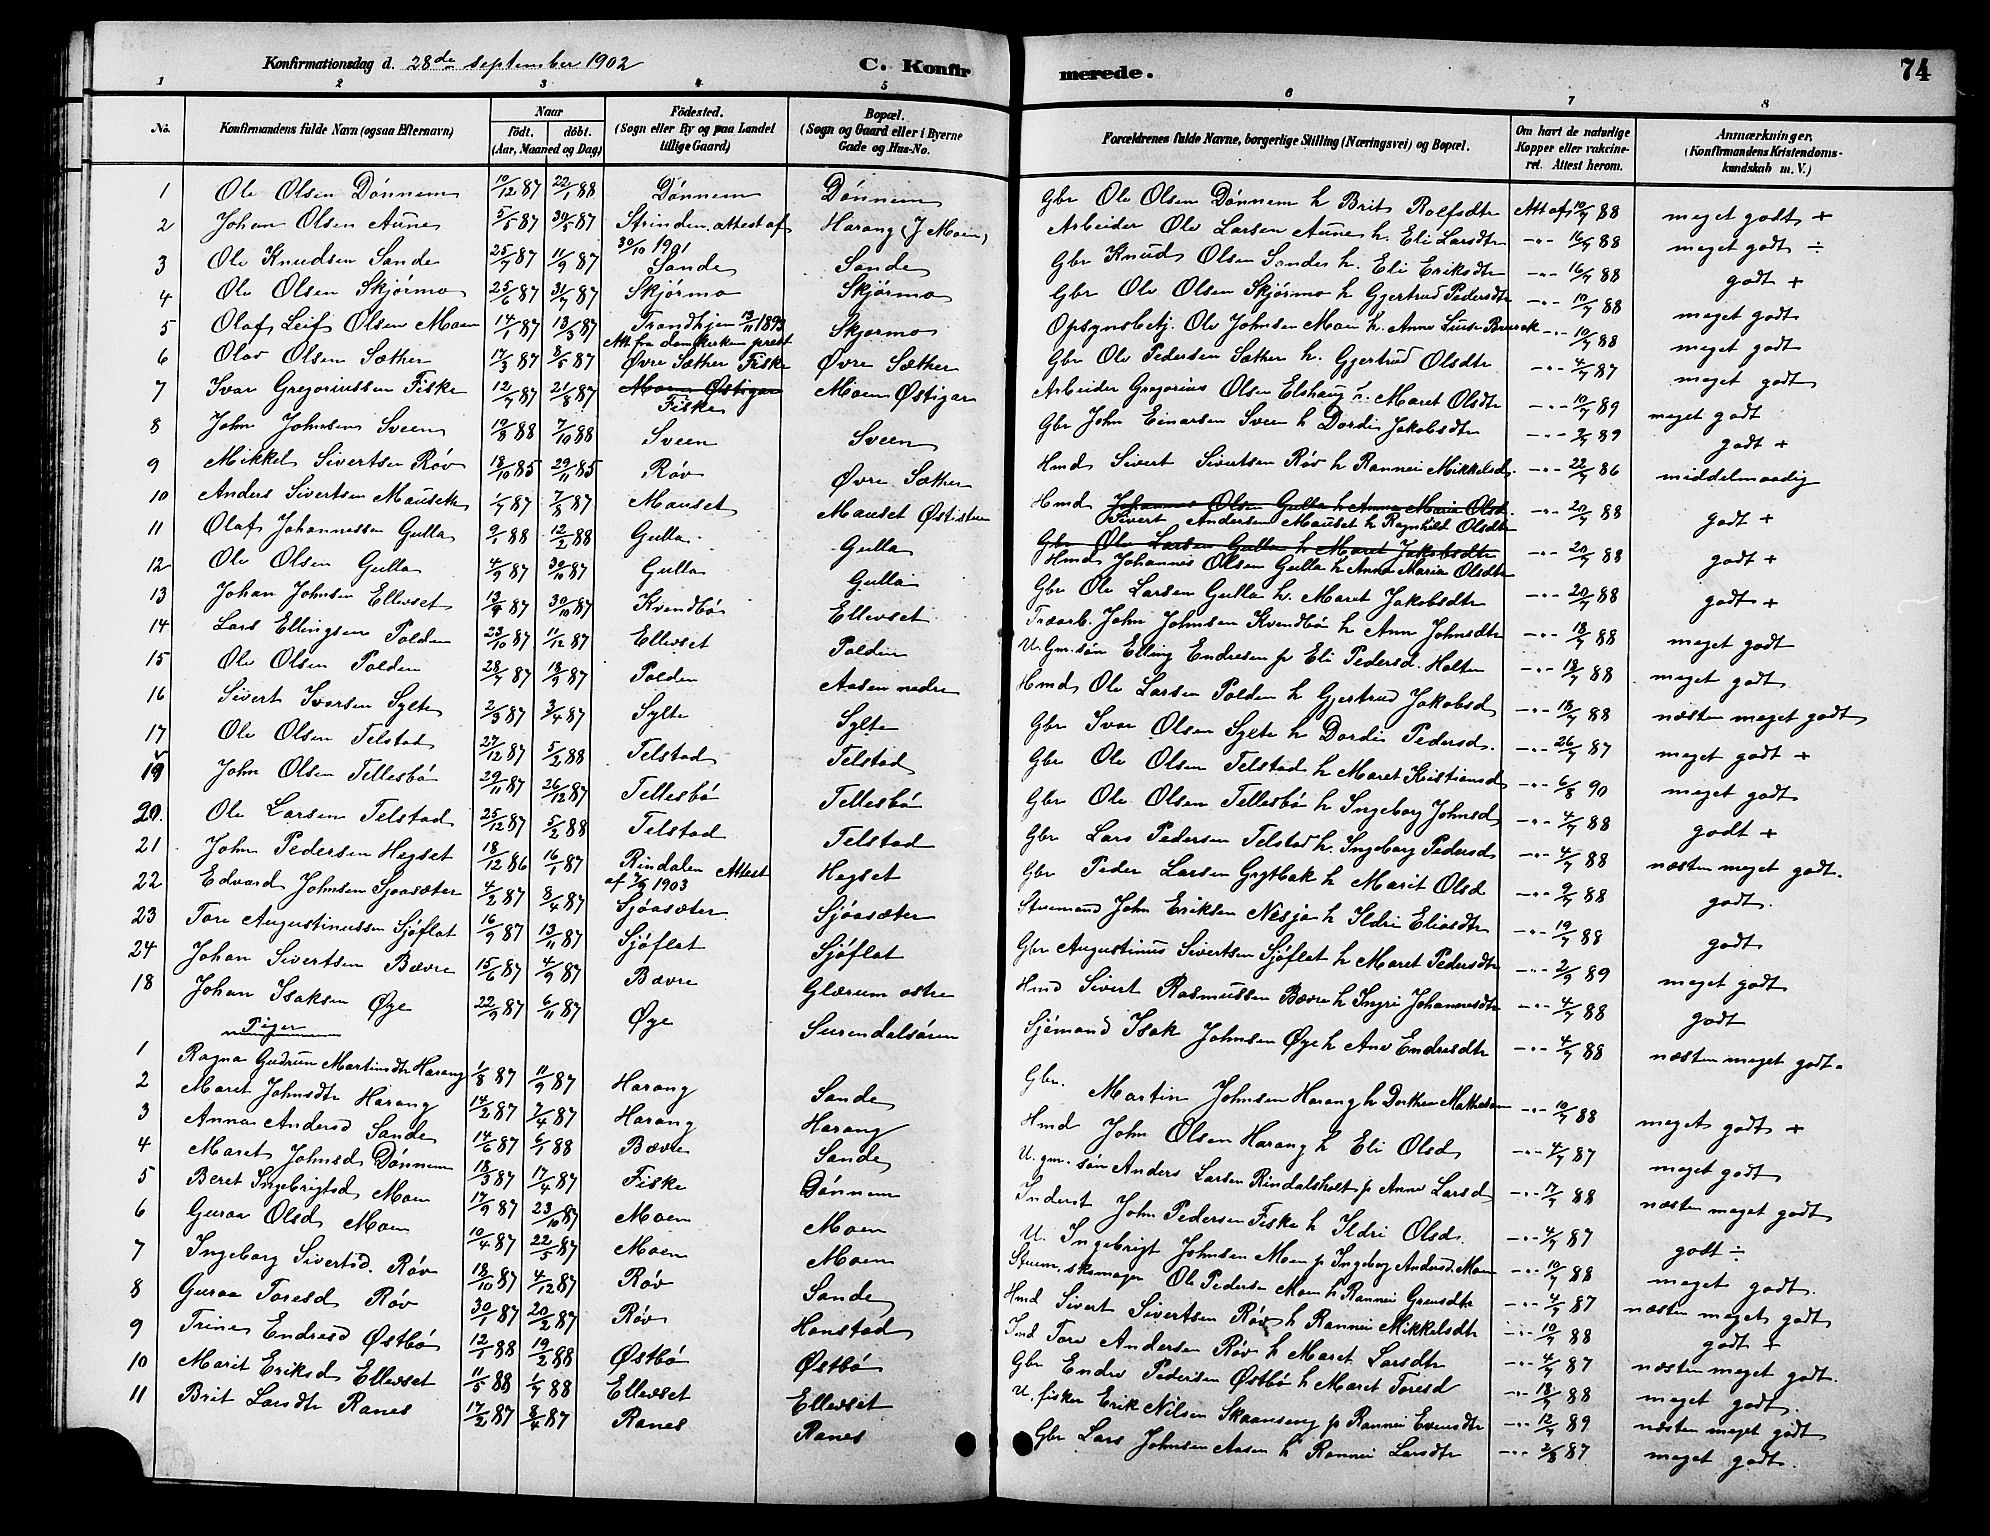 Konfirmationsdag d. 28de september 1902 C. Konfirmerede. 74
1 2 3 4 5 6 7 8
No. Konfirmandens fulde Navn (ogsaa Efternavn) Naar født. døbt. (Aar, Maaned og Dag) Födested. (Sogn eller By og paa Landet tillige Gaard) Bopæl. (Sogn og Gaard eller i Byerne Gade og Hus-No. Forældrenes fulde Navne, borgerlige Stilling (Næringsvei) og Bopæl. Om havt de naturlige Kopper eller vakcineret. Attest herom. Anmærkninger, (Konfirmandens Kristendomskundskab m. V.)
1 Ole Olsen Dønnem 10/12 87 22/1 88 Dønnem Dønnem Gbr Ole Olsen Dønnem h Brit Rolfsdtr Att af 10/7 88 meget godt +
2 Johan Olsen Aune 5/5 87 30/5 87 Strinden attest af 30/10 1901 Harang (J Moen) Arbeider Ole Larsen Aune h. Eli Larsdtr -"- 16/7 88 meget godt ÷
3 Ole Knudsen Sande 25/7 87 11/9 87 Sande Sande Gbr Knud Olsen Sande h. Eli Eriksdtr -"- 16/7 88 godt +
4 Ole Olsen Skjørmo 25/6 87 31/7 87 Skjørmo Skjørmo Gbr Ole Olsen Skjørmo h Gjertrud Pedersdtr -"- 10/7 88 meget godt
5 Olaf Leif Olsen Moen 14/1 87 13/3 87 Trondhjem 13/11 1893 Att fra domkirken prest Skjørmo Opsynsbetj. Ole Johnsen Moen h. Anne Luise -"- 10/7 88 meget godt
6 Olav Olsen Sæther 17/3 87 8/5 87 Øvre Sæther Fiske Øvre Sæther Gbr Ole Pedersen Sæther h. Gjertrud Olsdtr -"- 4/7 87 meget godt
7 Ivar Gregoriussen Fiske 12/7 87 21/8 87 Moen Østigar Fiske Moen Østigar Arbeider Gregorius Olsen Elshaug h. Maret Olsdtr -"- 10/7 89 meget godt
8 John Johnsen Sveen 19/8 88 7/10 88 Sveen Sveen Gbr John Einarsen Sveen h Dordi Jakobsdtr -"- 2/7 89 godt +
9 Mikkel Sivertsen Røv 18/10 85 29/11 85 Røv Øvre Sæther Hmd Sivert Sivertsen Røv h Rannei Mikkelsd. -"- 22/7 86 middelmaadig
10 Anders Sivertsen Mauseth 1/7 87 7/8 87 Mauset Mauset Østistun Hmd Johannes Olsen Gulla h Anna Maria Olsd. Sivert Andersen Mauset h Ragnhild Olsdtr -"- 20/7 88 godt +
11 Olaf Johannessen Gulla 9/1 88 12/2 88 Gulla Gulla Gbr Ole Larsen Gulla h Maret Jakobsdtr Hmd Johannes Olsen Gulla h Anna Maria Olsdtr -"- 20/7 88 godt +
12 Ole Olsen Gulla 4/9 87 30/10 87 Gulla Gulla Gbr Ole Larsen Gulla h. Maret Jakobsdtr -"- 20/7 88 godt +
13 Johan Johnsen Ellevset 13/9 87 30/10 87 Kvendbø Ellevset Træarb. John Johnsen Kvendbø h Ane Johnsdtr -"- 18/7 88 meget godt
14 Lars Ellingsen Polden 23/10 87 11/12 87 Ellevset Polden U. Gm.søn Elling Endresen p Eli Pedersd. Holten -"- 18/7 88 meget godt
15 Ole Olsen Polden 28/7 87 18/9 87 Polden Aasen nedre Hmd Ole Larsen Polden h Gjertrud Jakobsd -"- 18/7 88 næsten meget godt
16 Sivert Ivarsen Sylte 2/3 87 3/4 87 Sylte Sylte Gbr Ivar Olsen Sylte h Dordi Pedersd. -"- 26/7 87 meget godt +
17 Ole Olsen Telstad 27/12 87 5/2 88 Telstad Telstad Gbr Ole Olsen Telstad h Maret Kristiansd -"- 6/8 90 meget godt
19 John Olsen Tellesbø 29/11 87 26/12 87 Tellesbø Tellesbø Gbr Ole Olsen Tellesbø h Ingeborg Johnsd -"- 4/7 88 godt +
20. Ole Larsen Telstad 25/12 87 5/2 88 Telstad Telstad Gbr Lars Pedersen Telstad h. Ingeborg Pedersd -"- 4/7 88 næsten meget godt.
21 John Pedersen Hegset 18/12 86 16/1 87 Rindalen Attest af 7/9 1903 Hegset Gbr Peder Larsen Grytbak h Marit Olsd -"- 9/7 88 godt.
22 Edvard Johnsen Sjøasæter 4/2 87 8/4 87 Sjøasæter Sjøasæter John Eriksen Nesja h Ildri Eliasdtr -"- 19/7 88 godt
23 Tore Augustinussen Sjøflat 16/9 87 13/11 87 Sjøflat Sjøflat Gbr Augustinus Sivertsen Sjøflat h Maret Pedersdtr -"- 2/9 89 meget godt
24 Johan Sivertsen Bævre 15/6 87 4/9 87 Bævre Glærum østre Hmd Sivert Rasmussen Bævre h Ingri Johannesdtr -"- 4/7 88 godt
18 Johan Isaksen Øye 22/9 87 6/11 87 Øye Surendalsøren Sjømand Isak Johnsen Øye h Ane Endresdtr -"- 4/7 88 næsten meget godt.
Piger
1 Ragna Gudrun Martinsdtr Harang 1/8 87 11/9 87 Harang Sande Gbr. Martin Johnsen Harang h Dorthea -"- 10/7 88 meget godt +
2 Maret Johnsdtr Harang 14/2 87 7/4 87 Harang Harang Hmd John Olsen Harang h Eli Olsd -"- 4/7 87 meget godt
3 Anna Andersd Sande 14/6 87 6/1 88 Bævre Sande U. gm.søn Anders Larsen Rindalsholt p Anne Larsd -"- 17/7 88 næsten meget godt
4 Maret Johnsd Dønnem 18/3 87 17/4 87 Fiske Dønnem Inderst John Pedersen Fiske h Ildri Olsd. -"- 4/7 87 godt ÷
5 Beret Ingebrigtsd Moen 17/9 87 23/10 87 Moen Moen U. Ingebrigt Johnsen Moen p Ingeborg Andersd. Moen -"- 10/7 88 meget godt.
6 Guraa Olsd Moen 10/4 87 22/5 87 Moen Moen Ole Pedersen Moen h Rannei -"- 4/7 87 næsten meget godt
7 Ingeborg Sivertsd. Røv 18/10 87 4/12 87 Røv Sande Hmd Sivert Sivertsen Røv h Rannei Mikkelsdtr -"- 10/7 88 godt +
8 Guraa Toresd Røv 30/1 87 20/2 87 Røv Honstad Ind Tore Andersen Røv h Maret Larsdtr -"- 4/7 87 næsten meget godt.
9 Trine Endresd Østbø 12/1 88 19/2 88 Østbø Østbø Gbr Endre Pedersen Østbø h Maret Toresd -"- 18/7 88 meget godt.
10 Marit Eriksd Ellevset 11/5 88 1/7 88 Ellevset Ellevset U. fisker Erik Nilsen p Rannei Evensdtr -"- 12/7 89 næsten meget godt
11 Brit Larsdtr Ranes 17/2 87 8/4 87 Ranes Ranes Gbr Lars Johnsen Aasen h Rannei Larsdtr -"- 2/8 87 meget godt.